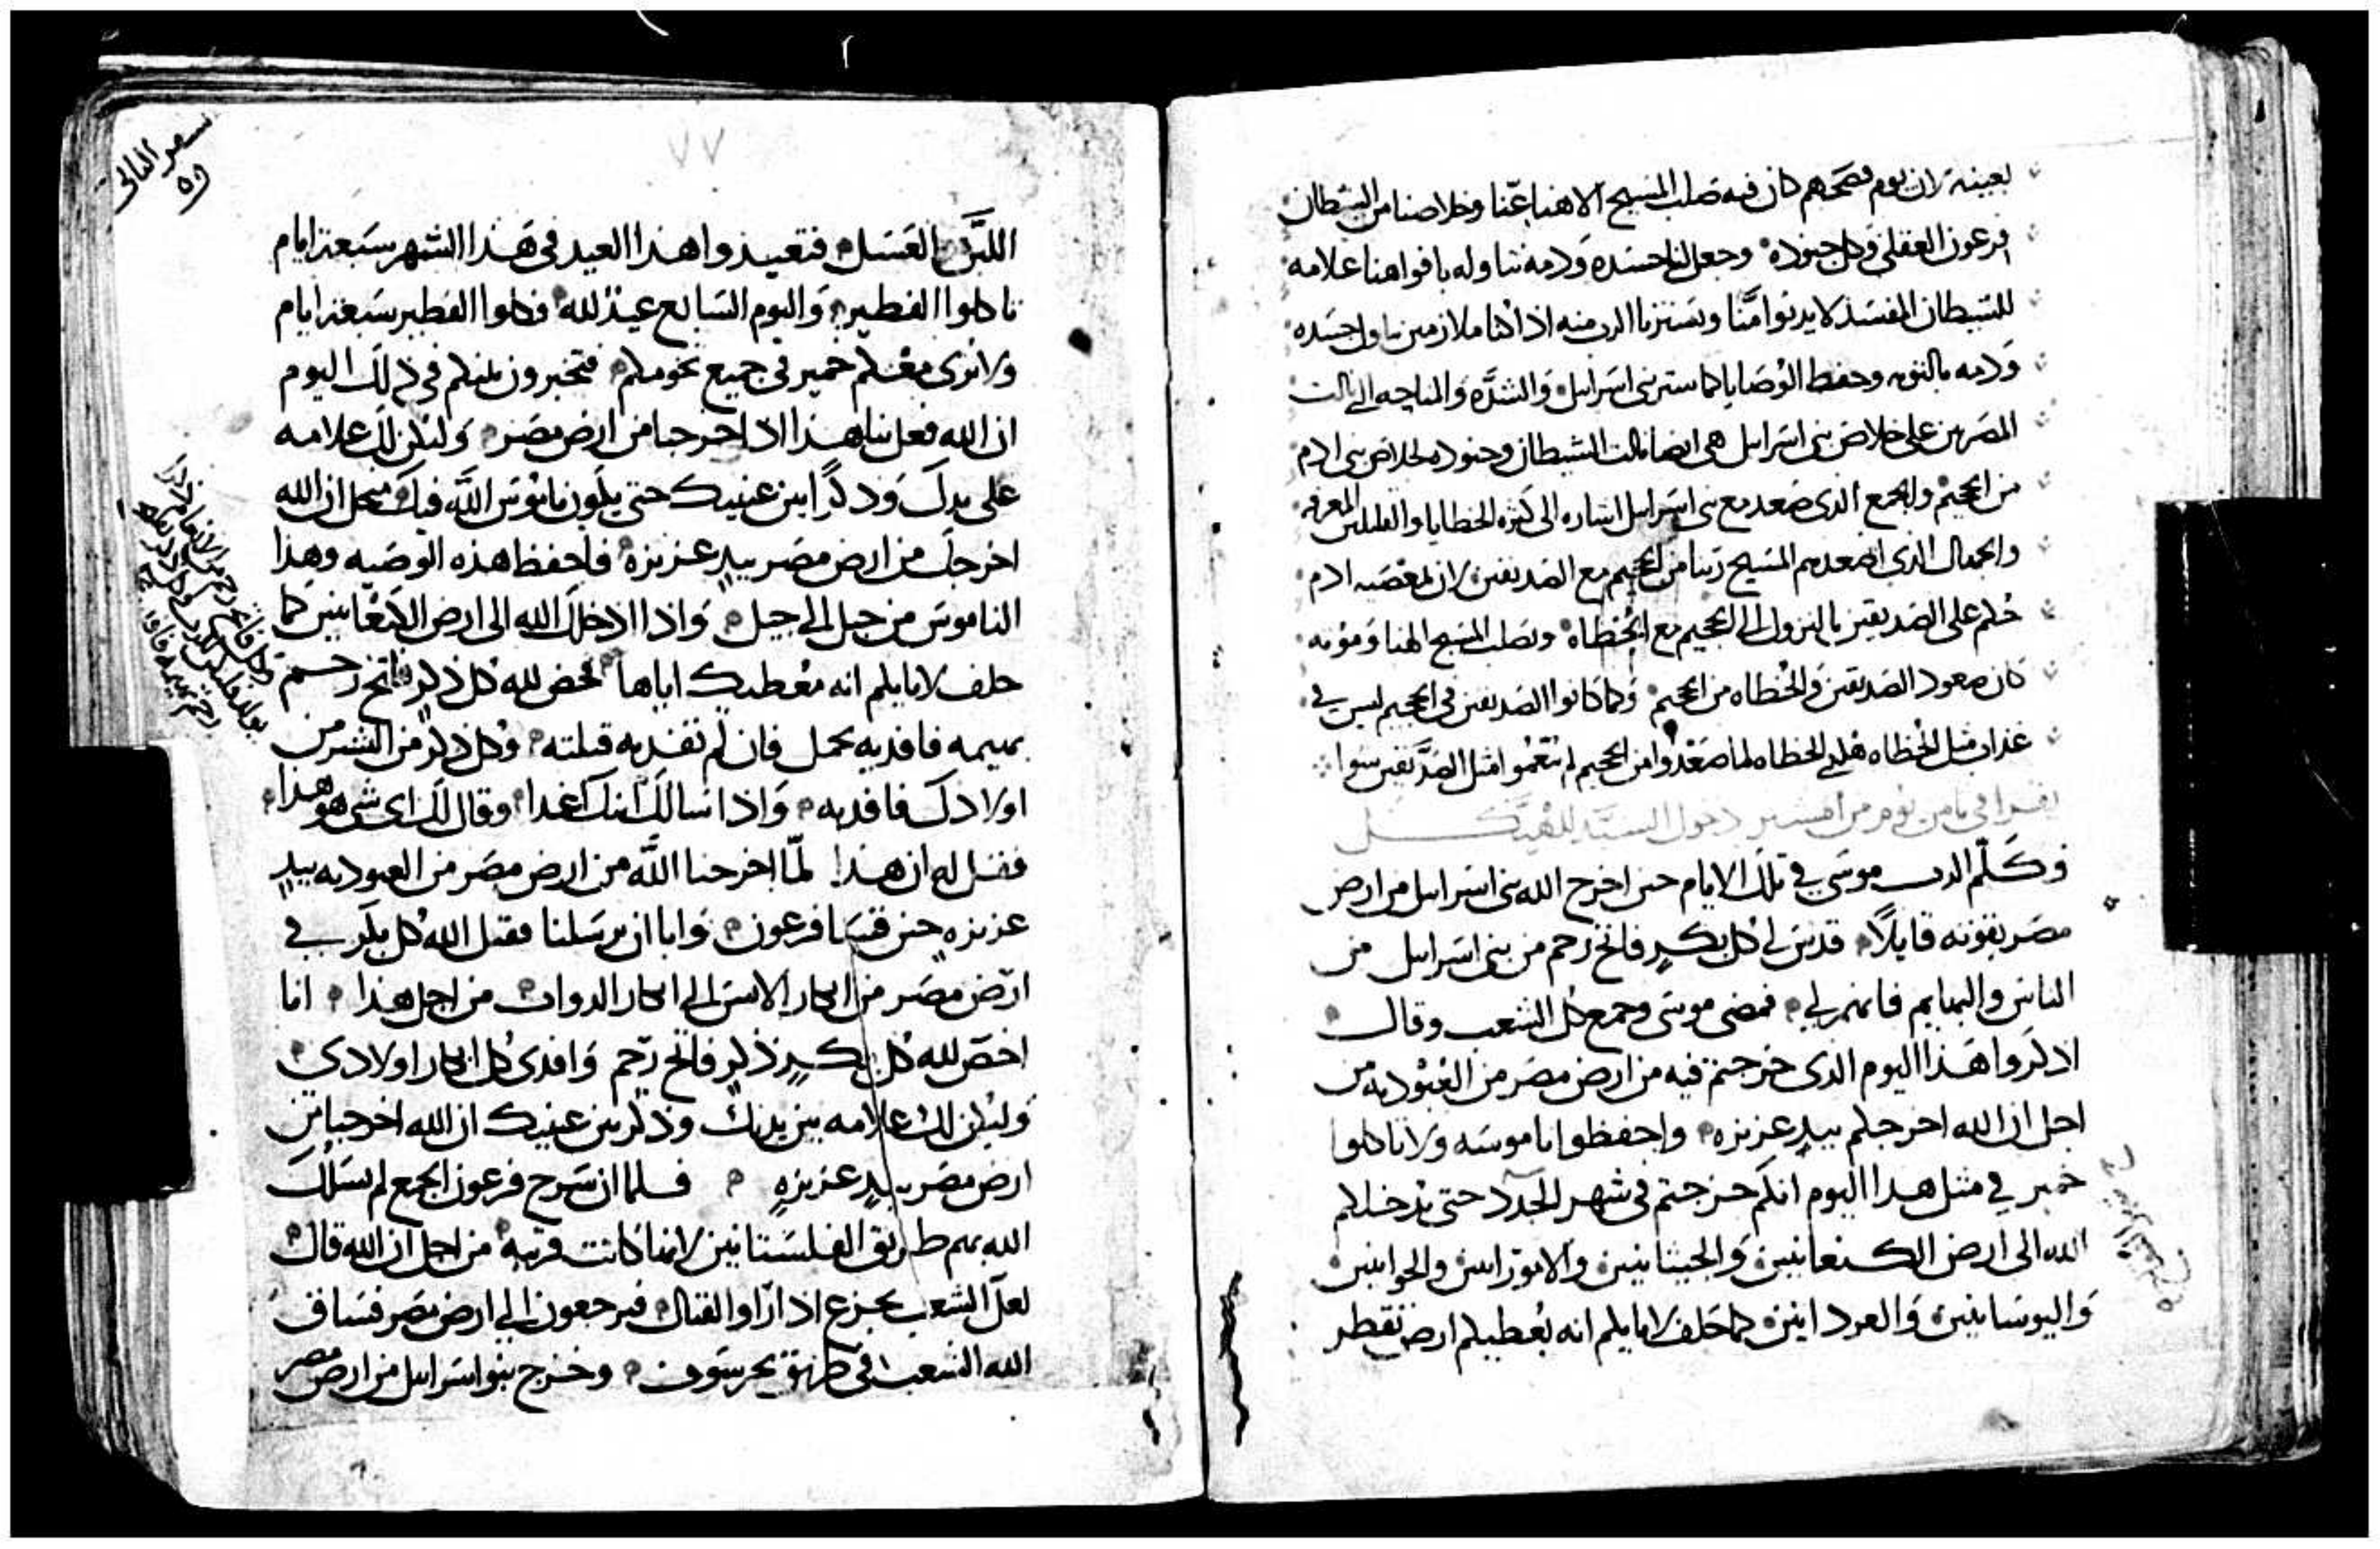 بعينه لان يوم فصحهم كان فيه صلب المسيح الاهنا عنا وخلاصنا من الشطان
فرعون العقلي وكل جنوده وجعل لنا جسده ودمه نتناوله بافواهنا علامه
للشيطان المفسد لا يدنوا منا ونستتر بالرب منه اذا كنا ملازمين تناول جسده
ودمه بالتوبه وحفظ الوصايا كما ستر بني اسرايل والشده والمناحه التي نالت
المصريين على خلاص بني اسرايل هي ايضا نالت الشيطان وجنوده لخلاص بني ادم
من الجحيم والجمع الدي صعد مع بني اسرايل اشاره الى كثرة الخطايا والقليلين المعرفه
والجهال الذي اصعدهم المسيح ربنا من الجحيم مع الصديقين لان بمعصيه ادم
حكم على الصديقين بالنزول الى الجحيم مع الخطاه وبصلب المسيح الهنا وموته
كان صعود الصديقين والخطاه من الجحيم وكما كانوا الصديقين في الجحيم ليس في
عذاب مثل الخطاه هكدي الخطاه لما صعدوا من الجحيم لم يتنعموا مثل الصديقين سوا
يقرا في تامن يوم من امشير دخول السيد للهيكل
وكلم الرب موسى في تلك الايام حين اخرج الله بني اسرايل من ارض
مصر بقوته قايلا قدس لي كل بكر فاتح رحم من بني اسرايل من
الناس والبهايم فانهم لي فمضى موسى وجمع كل الشعب وقال
ادكروا هذا اليوم الدى خرجتم فيه من ارض مصر من العبوديه من
اجل ان الله اخرجكم بيد عزيزه واحفظوا ناموسه ولا تاكلوا
خمير في مثل هدا اليوم انكم خرجتم في شهر الجدد حتى يدخلكم
الله الى ارض الكنعانيين والحيثانيين والاموراىىن والحوايين
واليوسانيين والعرداىىن كما حلف لابايكم انه يعطيكم ارض تقطر
سفر التاني
٧٧
اللبن العسل فتعيدوا هذا العيد في هذا الشهر سبعة ايام
تاكلوا الفطير واليوم السابع عيد لله فكلوا الفطير سبعة ايام
ولا نرى معكم خمير في جميع تخومكم فتخبرون بنيكم في ذلك اليوم
ان الله فعل بنا هذا اد اخرجنا من ارض مصر وليكن لك علامه
على يدك ودكرا بين عينيك حتى يكون ناموس الله فيك من اجل ان الله
اخرجك من ارض مصر بيد عزيزه فاحفظ هذه الوصيه وهذا
الناموس من جيل الى جيل واذا ادخلك الله الى ارض الكنعانيين كما
حلف لابايكم انه معطيك اياها تخض لله كل ذكر فاتح رحم
بهيمه فافديه بحمل فان لم تفديه قتلته وكل ذكر من البشر من
اولادك فافديه واذا سالك ابنك غدا وقال لك اي شي هو هذا
فقل له ان هذا لما اخرجنا الله من ارض مصر من العبوديه بيد
عزيزه حين قسا فرعون وابا ان يرسلنا فقتل الله كل بكر في
ارض مصر من ابكار الانس الى ابكار الدواب من اجل هذا انا
اخص لله كل بكر ذكر فاتح رحم وافدى كل ابكار اولادي
وليكن لك علامه بين يديك وذكر بين عينيك ان الله اخرجنا من
ارض مصر بيد عزيزه فلما ان سرح فرعون الجمع لم يسلك
الله بهم طريق الفلستانيين لانها كانت قريبه من اجل ان الله قال
لعل الشعب يجزع اذا راوا القتال فيرجعون الى ارض مصر فساق
الله الشعب في طريق بحر سوف وخرج بنو اسرايل من ارض مصر